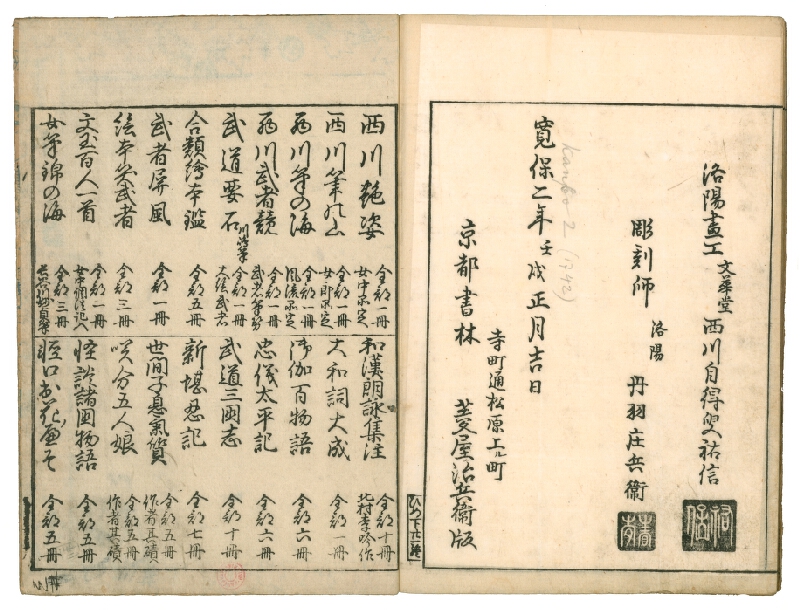 洛陽畫工 文華堂 西川自得叟祐信
祐信
彫刻師 洛陽 丹羽庄兵衛
寛保二年壬戌正月吉日
Kanpo 2 (1742)
寺町通松原上ル町
京都書林 菱屋治兵衛版
西川艶姿 全部一冊
西川筆の山 全部一冊
西川筆の海 全部一冊
西川武者競 全部一冊
武道要石 全部一冊
合類絵本鑑 全部五冊
武者屏風 全部一冊
絵本 武者 全部三冊
文玉百人一首 全部一冊
女筆錦の海 全部三冊
和漢朗詠集注 全部十冊 北村季吟作
大和詞大成 全部一冊
御伽百物語 全部六冊
忠儀太平記 全部六冊
武道三国志 全部十冊
新堪忍記 全部七冊
世間子息氣質 全部五冊 作者其磧
咲分五人娘 全部五冊 作者其磧
怪談諸国物語 全部五冊
全部五冊